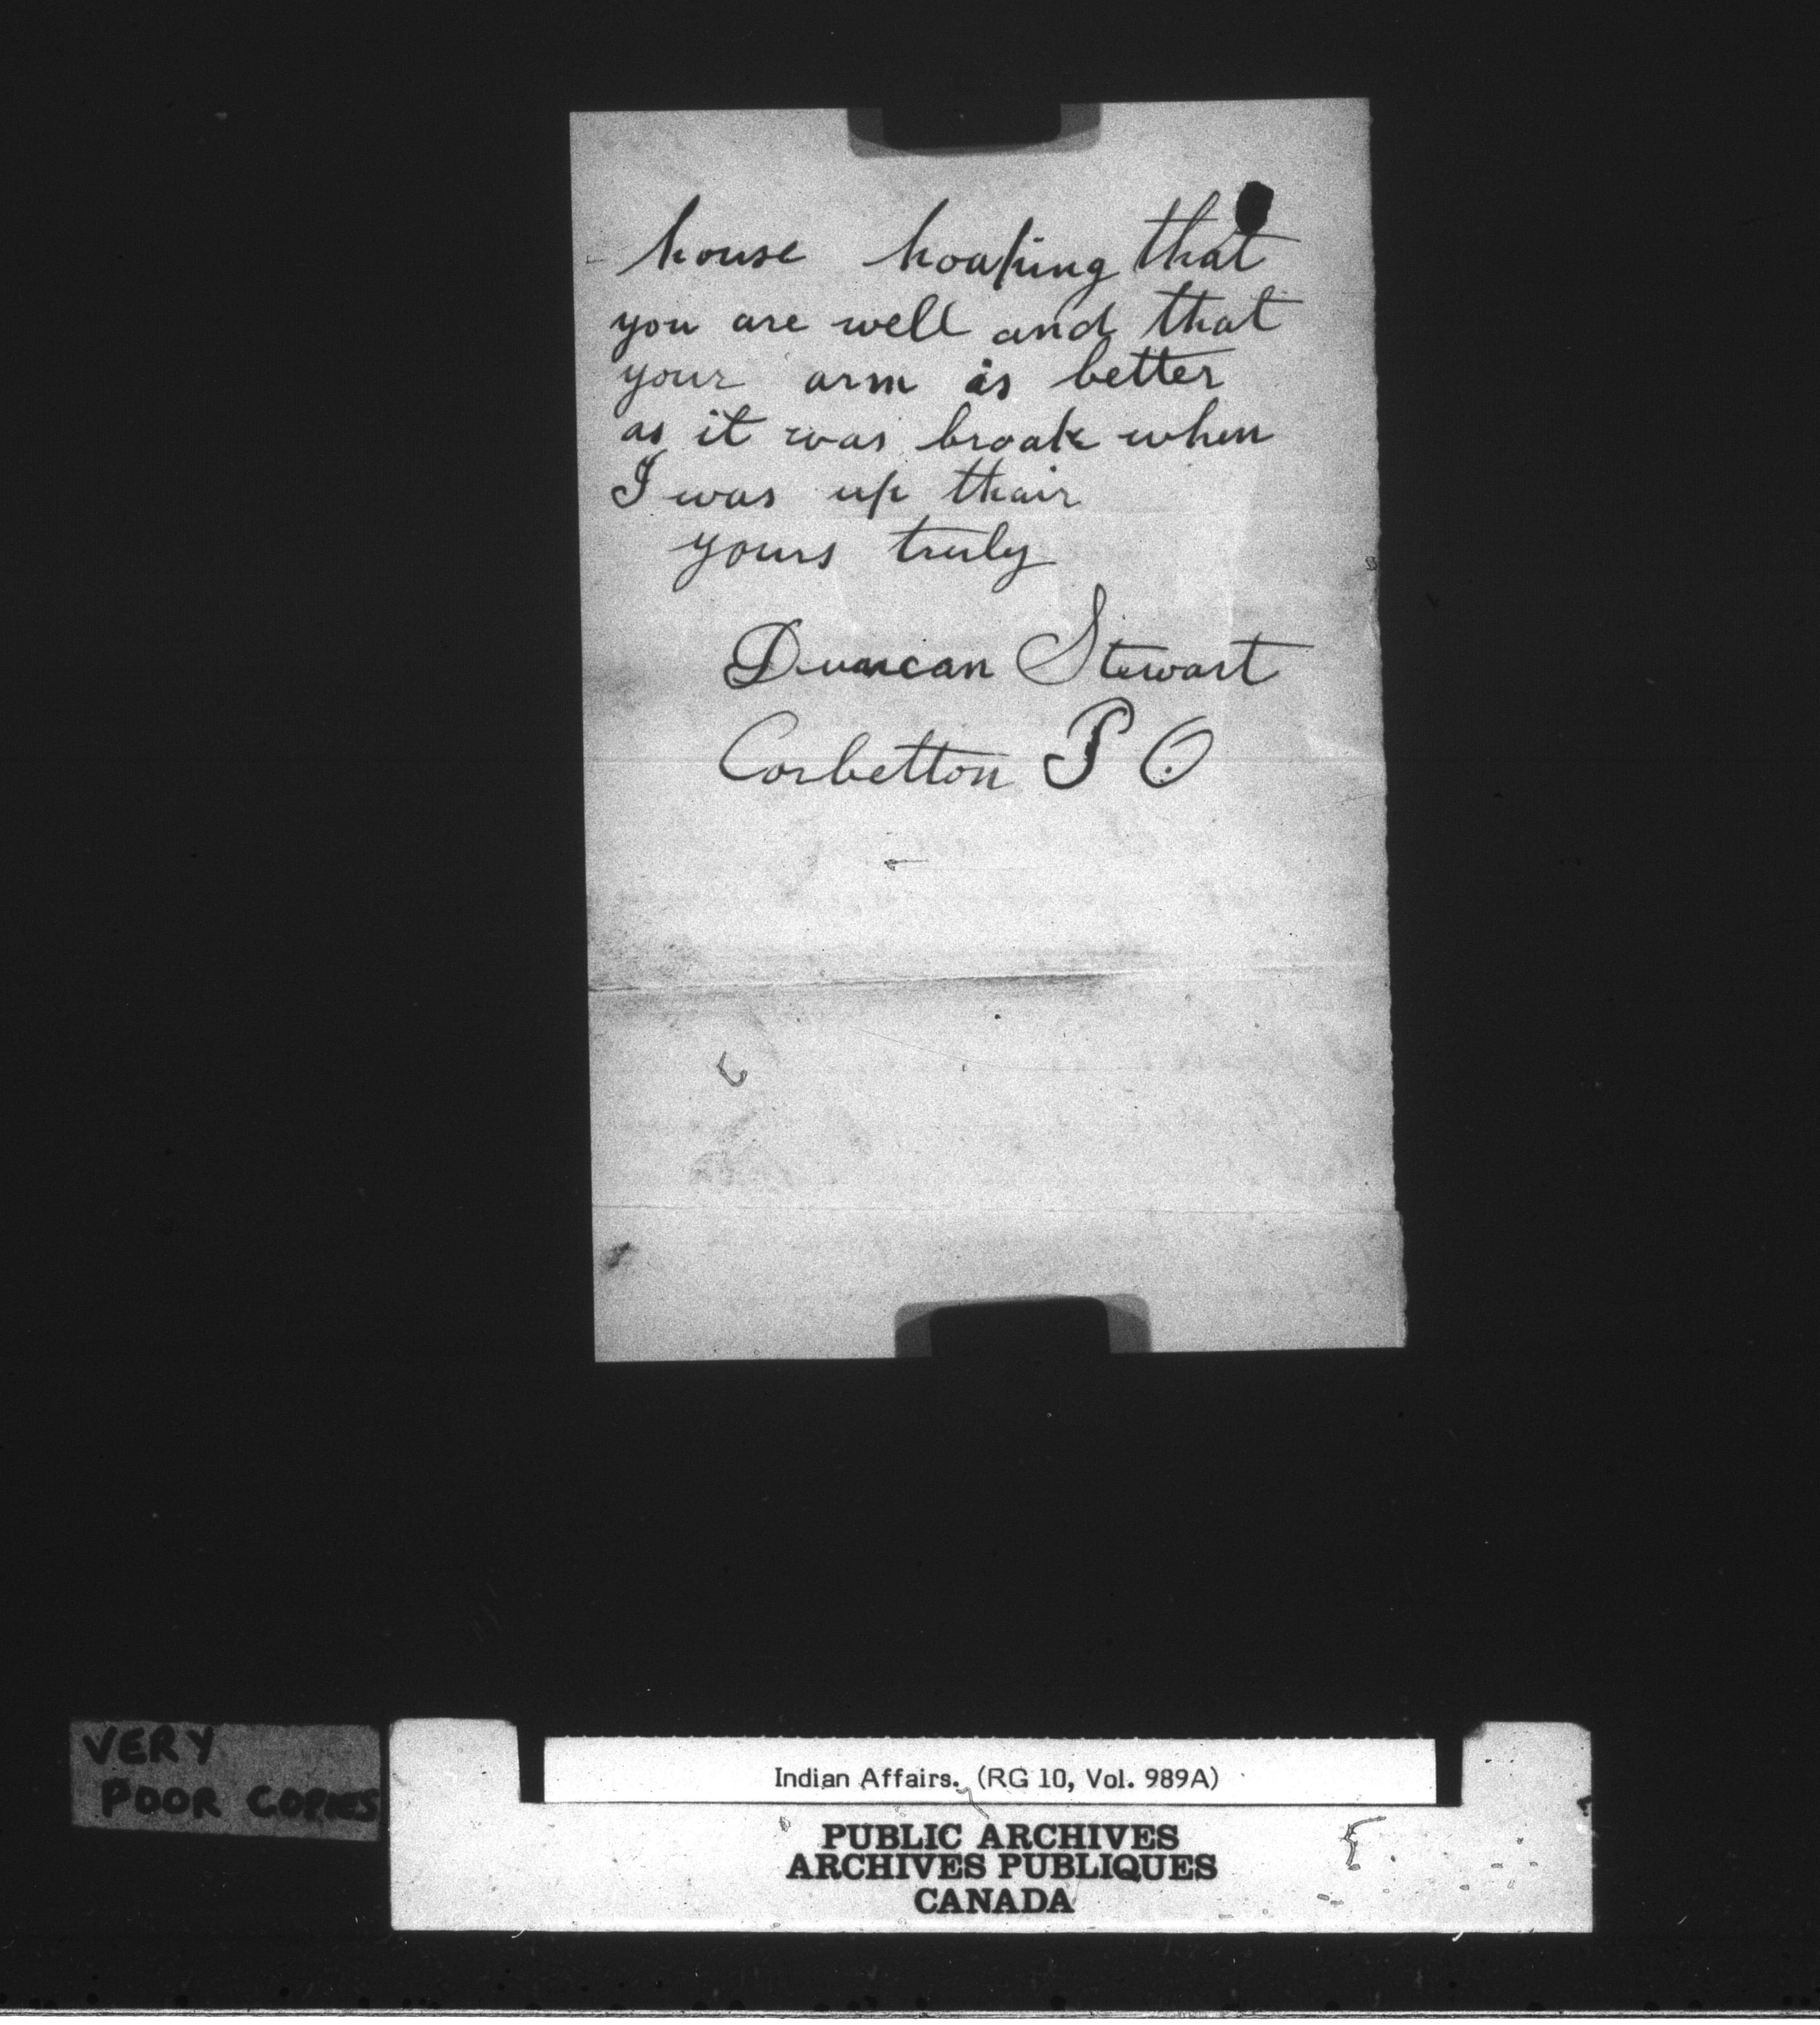 house hoaping that
you are well and that
your arm is better
as it was broak when
I was up thair
yours truly
Duncan Stewart
Corbetton P O
VERY
POOR COPIES
Indian Affairs. (RG 10, Vol. 989A)
PUBLIC ARCHIVES
ARCHIVES PUBLIQUES
CANADA